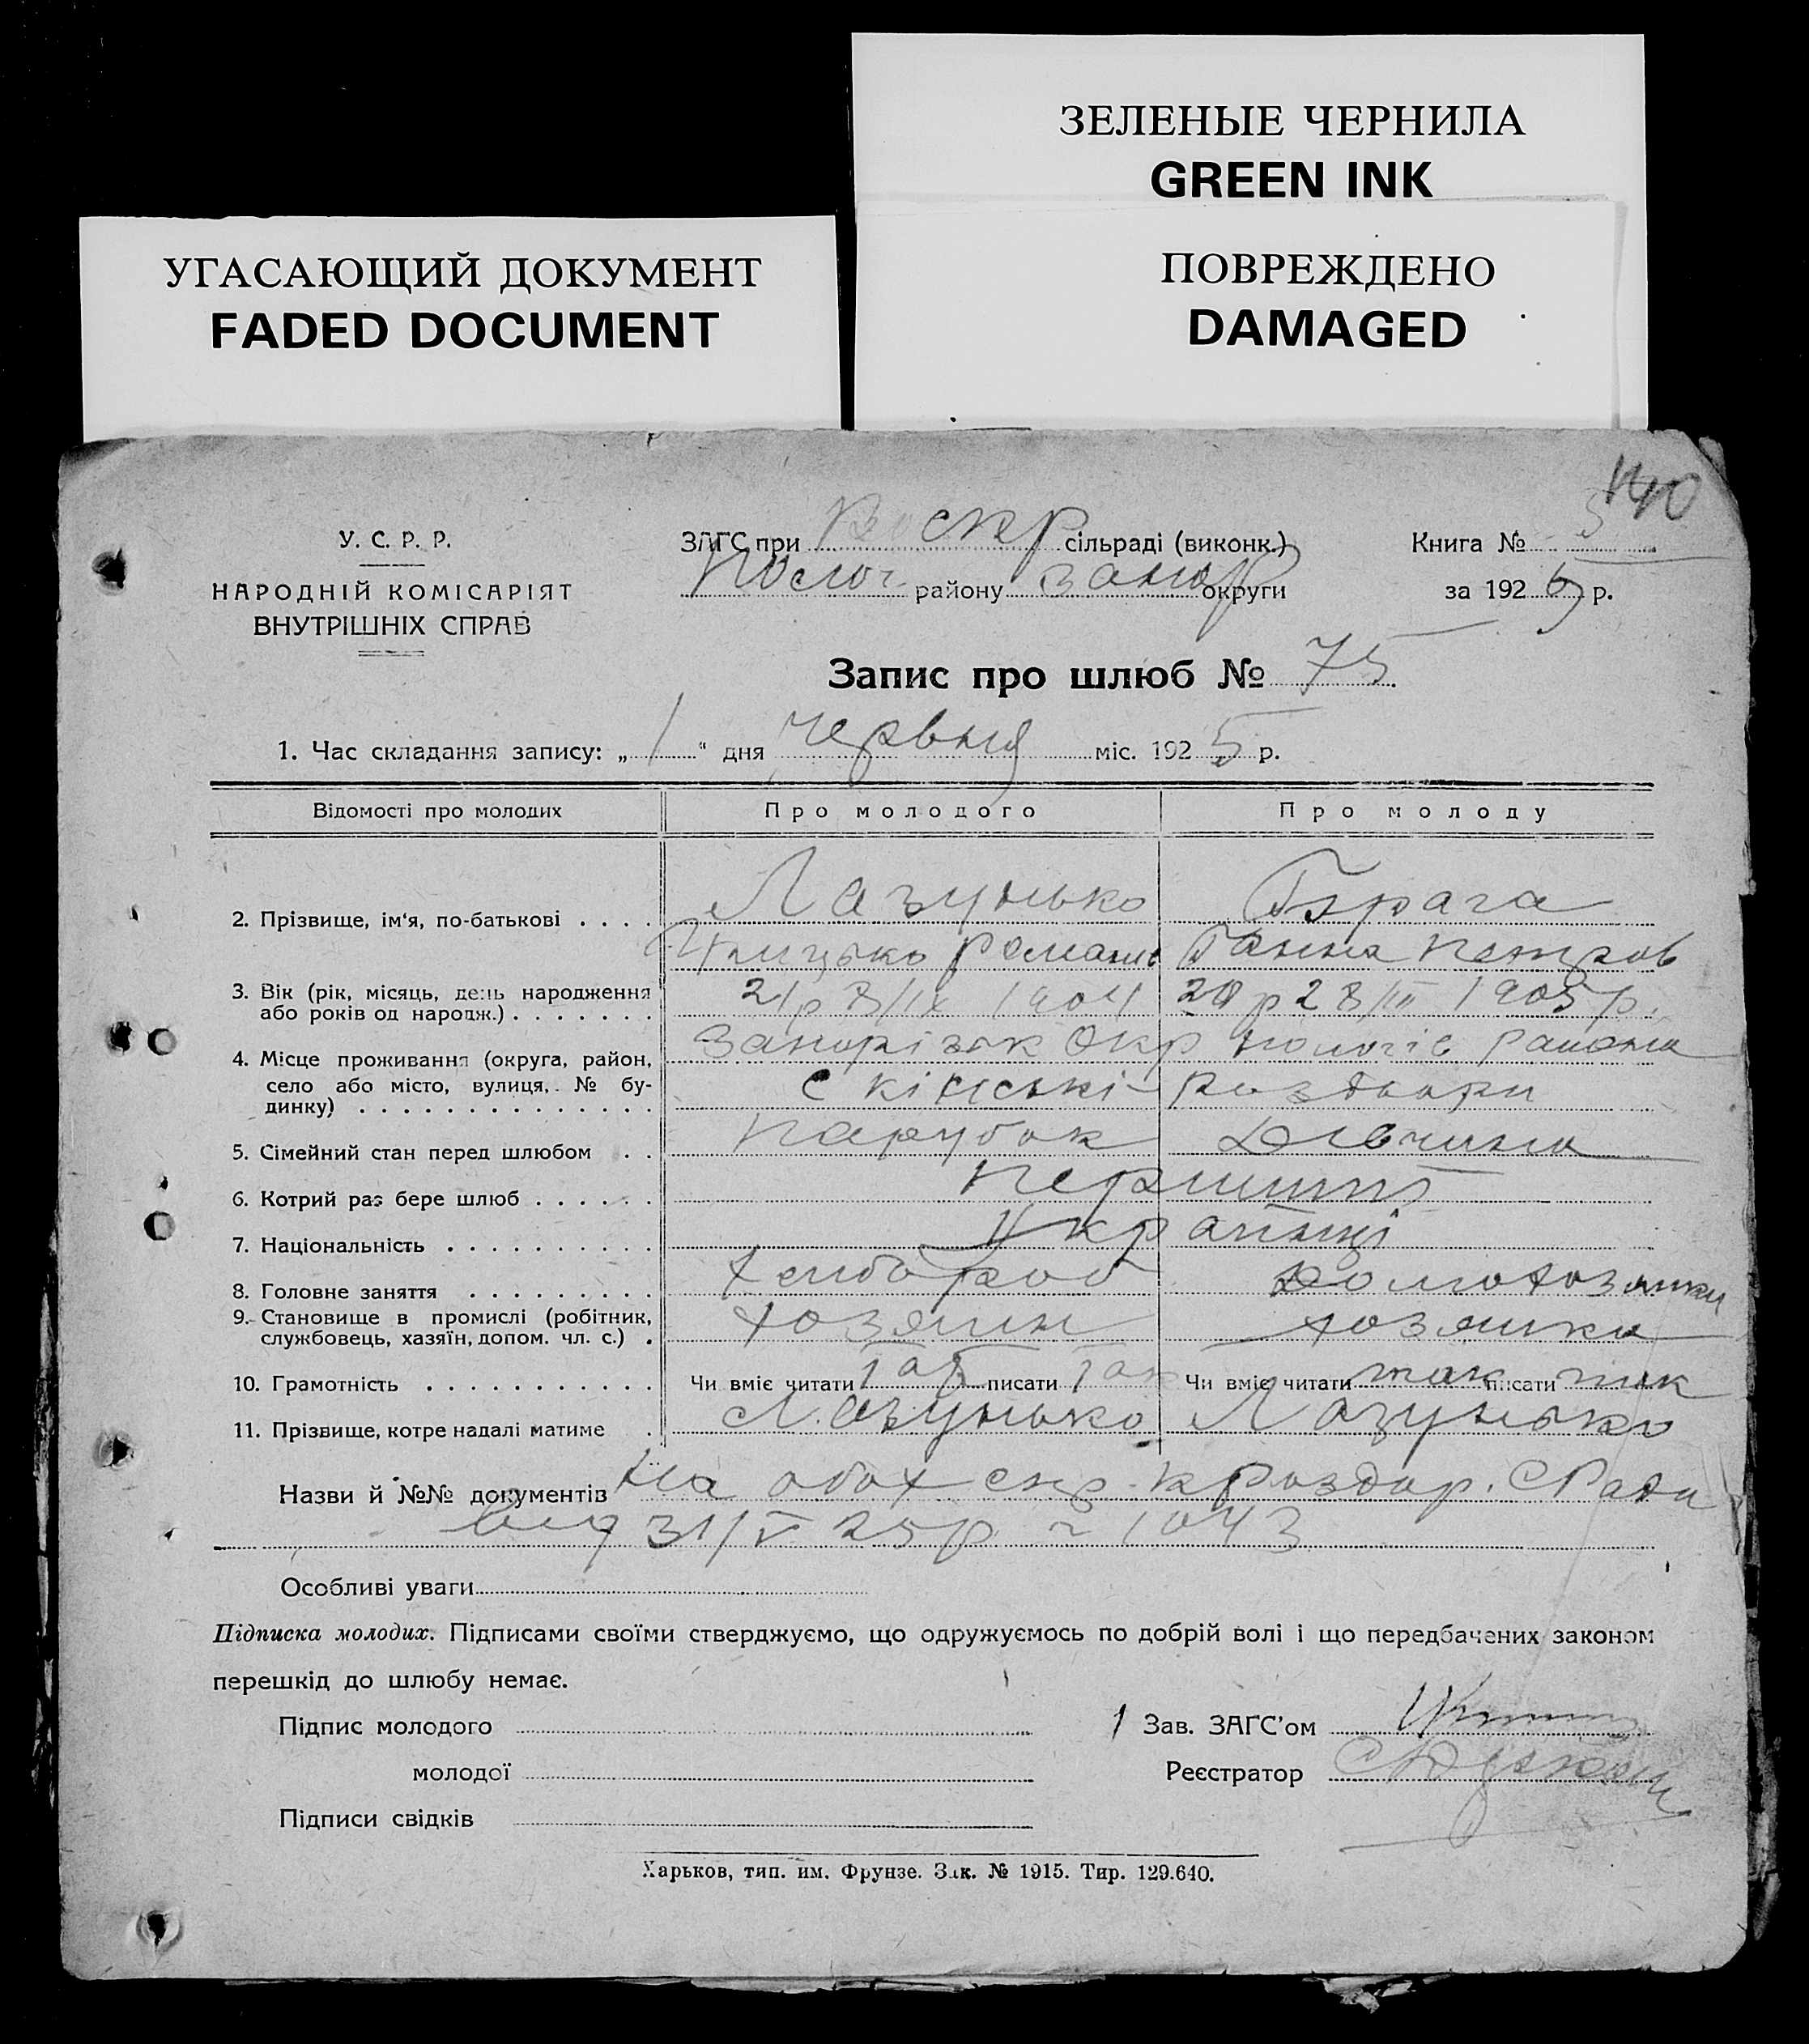 ЗЕЛЕНЫЕ ЧЕРНИЛА
GREEN INK
УГАСАЮЩИЙ ДОКУМЕНТ
FADED DOCUMENT
ПОВРЕЖДЕНО
DAMAGED
140
У. С. Р. Р.
НАРОДНІЙ КОМІСАРІЯТ
ВНУТРІШНІХ СПРАВ
ЗАГС при Воскр сільраді (виконк.)
Полог району Запор округи
Книга № 5
за 192 р.
Запис про шлюб № 75
1. Час складання запису: „1“ дня червня міс. 1925 р.
Відомості про молодих Про молодого Про молоду
2. Прізвище, ім‘я, по-батькові Лазунько Брага
Грицько Роман Ганна Петров
3. Вік (рік, місяць, день народження або років од народж.) 21р 8/ІХ 1904 20 р 28/ІІІ 1905р.
4. Місце проживання (округа, район, село або місто, вулиця, № будинку) Запорізьк Окр Пологів Района
с кінські Роздори
5. Сімейний стан перед шлюбом Парубок Дівчина
6. Котрий раз бере шлюб перший
7. Національність Українці
8. Головне заняття Хлибороб домохозяйки
9. Становище в промислі (робітник, службовець, хазяїн, допом. чл. с.) хозяин хозяйка
10. Грамотність Чи вміє читати так писати так Чи вміє читати так писати так
11. Прізвище, котре надалі матиме Лазунько Лазунько
Назви й №№ документів На обох К Роздор. С Ради
від 31/V 25р 1043
Особливі уваги
Підписка молодих. Підписами своїми стверджуємо, що одружуємось по добрій волі і що передбачених законом
перешкід до шлюбу немає.
Підпис молодого
Зав. ЗАГС’ом
молодої
Реєстратор
Підписи свідків
Харьков, тип. им. Фрунзе. Зак. № 1915. Тир. 129.640.